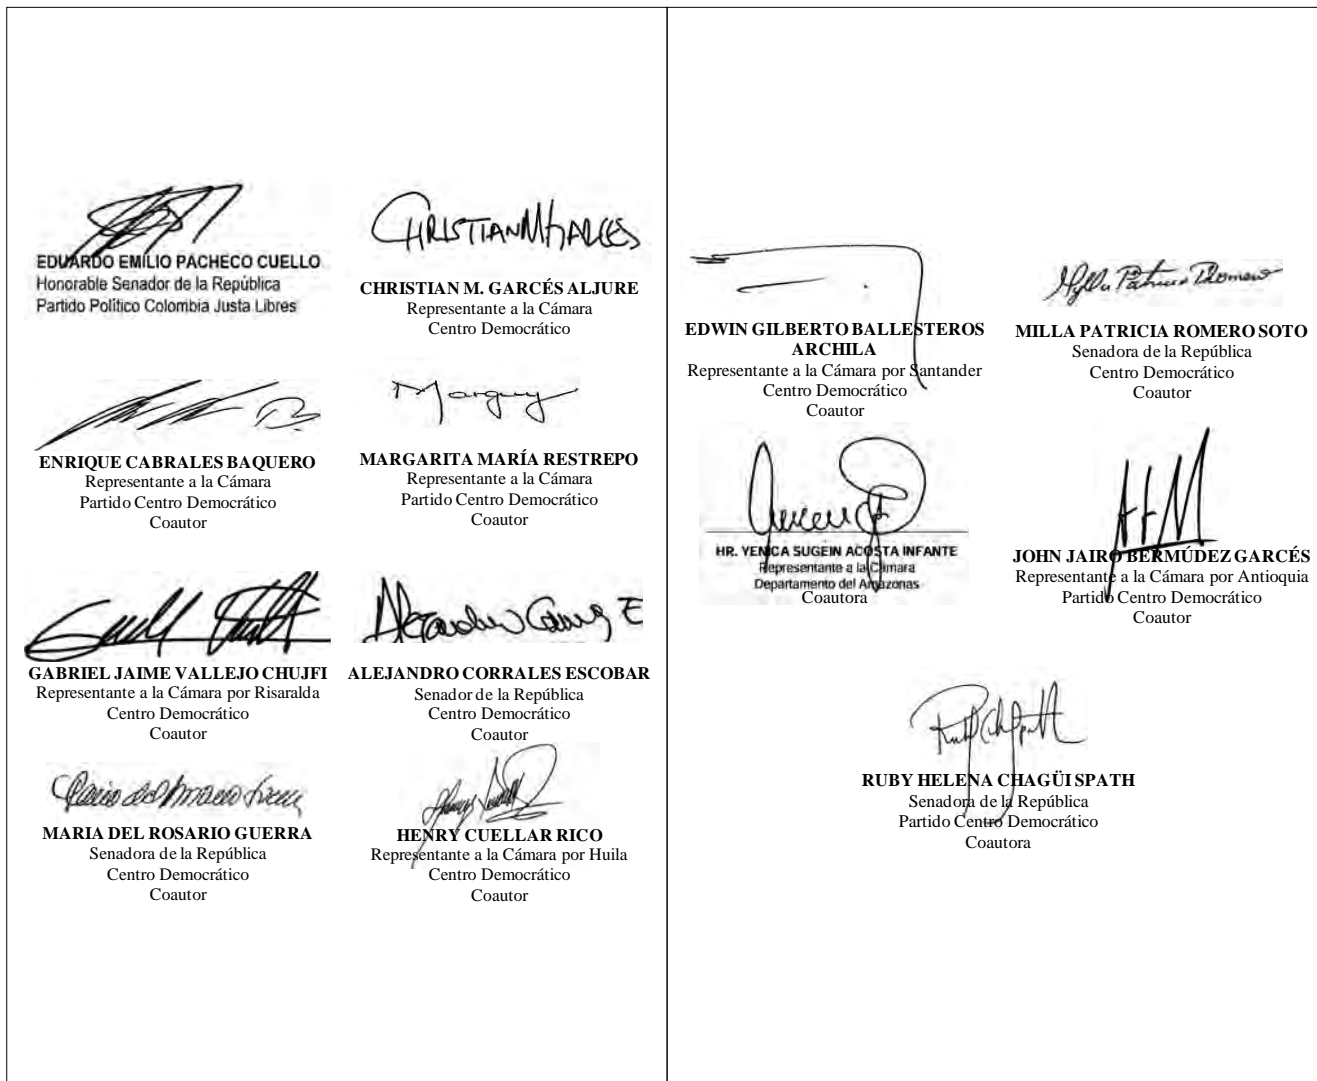 EDUARDO EMILIO PACHECO CUELLO
Honorable Senador de la República
Partido Político Colombia Justa Libres
CHRISTIAN M. GARCÉS ALJURE
Representante a la Cámara
Centro Democrático
ENRIQUE CABRALES BAQUERO
Representante a la Cámara
Partido Centro Democrático
Coautor
Marguy
MARGARITA MARÍA RESTREPO
Representante a la Cámara
Partido Centro Democrático
Coautor
GABRIEL JAIME VALLEJO CHUJFI
Representante a la Cámara por Risaralda
Centro Democrático
Coautor
ALEJANDRO CORRALES ESCOBAR
Senador de la República
Centro Democrático
Coautor
MARIA DEL ROSARIO GUERRA
Senadora de la República
Centro Democrático
Coautor
HENRY CUELLAR RICO
Representante a la Cámara por Huila
Centro Democrático
Coautor
EDWIN GILBERTO BALLESTEROS
ARCHILA
Representante a la Cámara por Santander
Centro Democrático
Coautor
MILLA PATRICIA ROMERO SOTO
Senadora de la República
Centro Democrático
Coautor
HR. YENICA SUGEIN ACOSTA INFANTE
Representante a la Cámara
Departamento del Amazonas
Coautora
JOHN JAIRO BERMÚDEZ GARCÉS
Representante a la Cámara por Antioquia
Partido Centro Democrático
Coautor
RUBY HELENA CHAGÜI SPATH
Senadora de la República
Partido Centro Democrático
Coautora